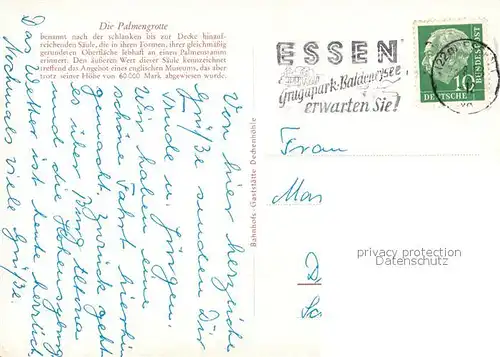 Die Palmengrotte
benannt nach der schlanken bis zur Decke hinauf-
reichenden Säule, die in ihren Formen, ihrer gleichmäßig
gerundeten Oberfläche lebhaft an einen Palmenstamm
erinnert. Den äußeren Wert dieser Säule kennzeichnet
treffend das Angebot eines englischen Museums, das aber
trotz seiner Höhe von 60000 Mark abgewiesen wurde.
ESSEN
Grugapark-Baldeneysee
erwarten Sie!
10
DEUTSCHE
BUNDESPOST
Von hier herzliche
Grüße senden Dir
u. Jürgen.
Wir haben eine
schöne Fahrt hierhin
gemacht. Zurück geht
es über Burg Altena
und die Hohensyburg
Das Wetter ist heute herrlich
Nochmals viele Grüße.
Bahnhofs-Gaststätte Dechenhöhle
Frau
Mar
D
privacy protection
Datenschutz